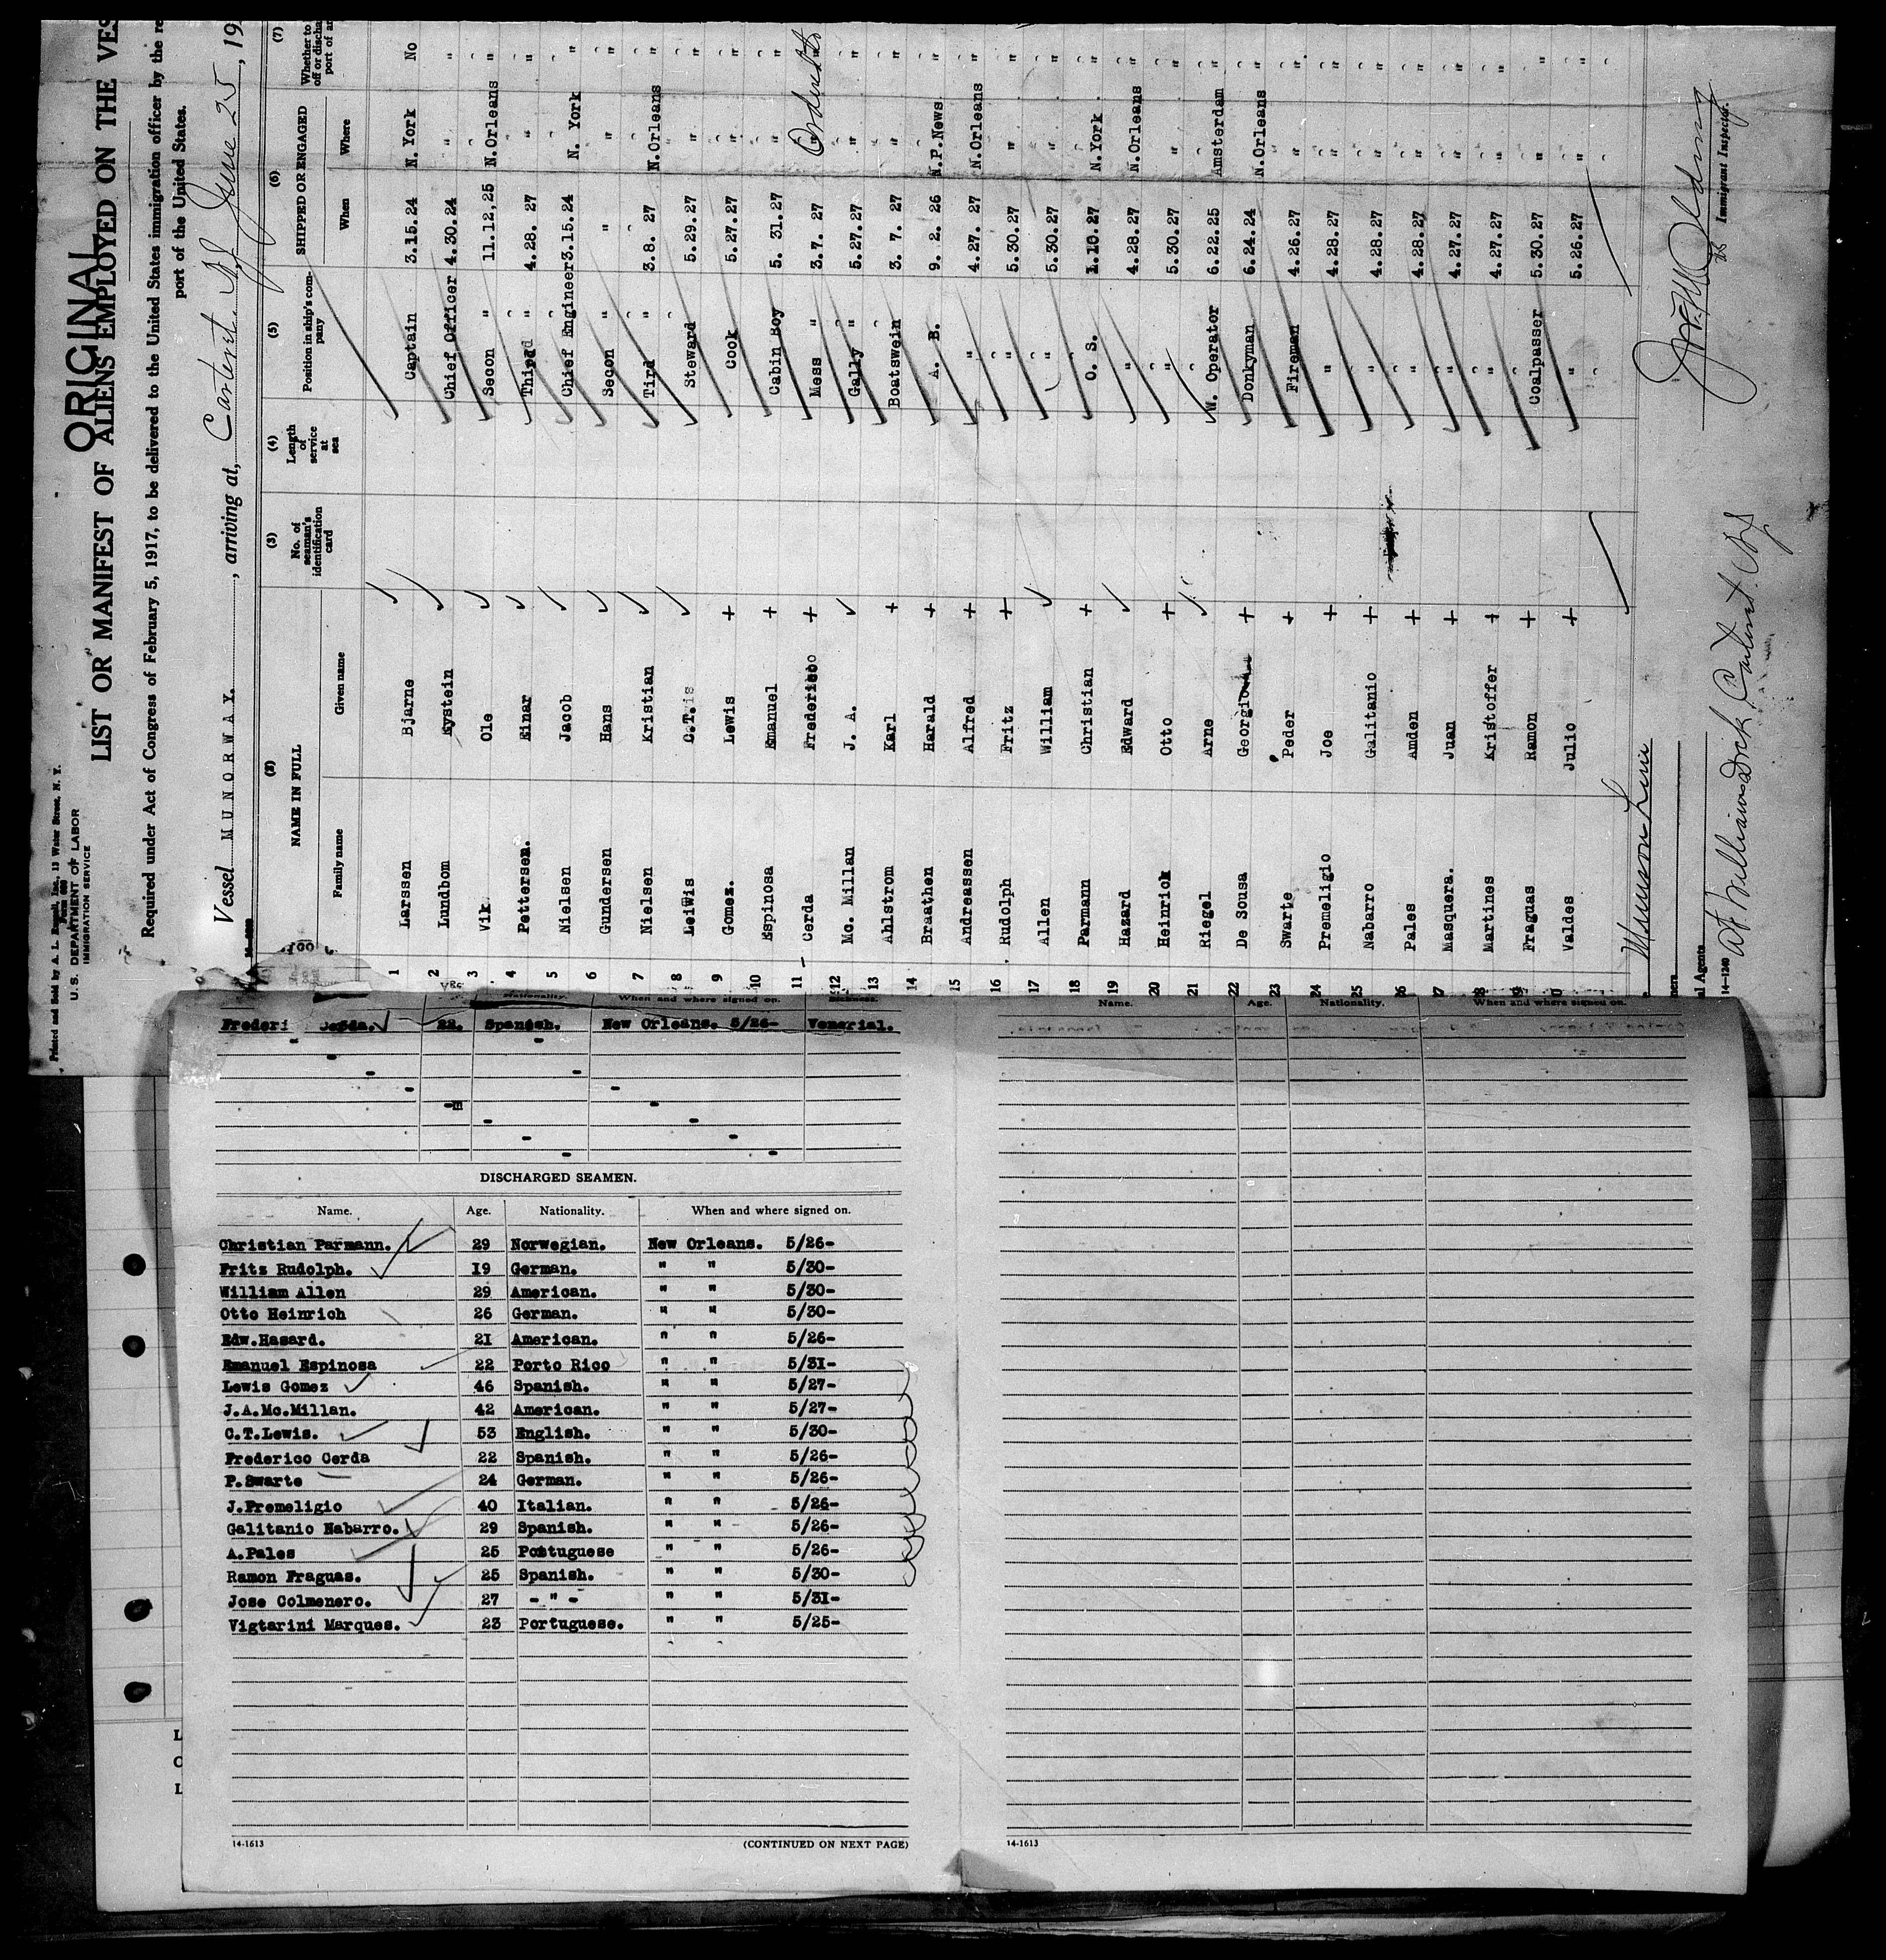 ORIGINAL
Printed and Sold by A. L. Russell, Inc., 13 Water Street, N. Y.
Form 689
U. S. DEPARTMENT OF LABOR
IMMIGRATION SERVICE
LIST OR MANIFEST OF ALIENS EMPLOYED ON THE VES
Required under Act of Congress of February 5, 1917, to be delivered to the United States immigration officer by the re
port of the United States.
Vessel MUNORWAY. , arriving at, Carteret. NJ June 25, 19
(2) (3) (4) (5) (6) (7)
NAME IN FULL No. of seaman's identification card Length of service at sea Position in ship's company SHIPPED OR ENGAGED Whether to
off or discha
port of ar
Family name Given name When Where
1 Larssen Bjarne Captain 3.15.24 N. York No
2 Lundbom Eystein Chief Officer 4.30.24 " "
3 Vik Ole Secon " 11.12,25 N.Orleans "
4 Pettersen. Einar Third " 4.28. 27 " "
5 Nielsen Jacob Chief Engineer 3.15.24 N. York "
6 Gundersen Hans Secon " " " "
7 Nielsen Kristian Tird " 3.8. 27 N.Orleans "
8 Leiwis C.T. Steward 5.29.27 " "
9 Gomez. Lewis Cook 5.27.27 " "
10 Espinosa Emanuel Cabin Boy 5. 31.27 " "
11 Cerda Frederico Mess " 3.7. 27 " "
12 Mc. Millan J. A. Gally " 5.27.27 " "
13 Ahlstrom Karl Boatswein 3. 7. 27 " "
14 Braathen Harald A. B. 9. 2. 26 N.P.News. "
15 Andreassen Alfred " 4.27. 27 N.Orleans "
16 Rudolph Fritz " 5.30.27 " "
17 Allen William " 5.30.27 "
18 Parmann Christian O. S. 1.10.27 N.York "
19 Hazard Edward " 4.28.27 N.Orleans "
20 Heinrich Otto " 5.30.27 " "
21 Riegel Arne W. Operator 6.22.25 Amsterdam "
22 De Sousa Georgio Donkyman 6.24.24 N.Orleans "
23 Swarte Peder Fireman 4.26.27 " "
24 Premeligio Joe " 4.28.27 " "
25 Nabarro Galitanio " 4.28.27 " "
26 Pales Amden " 4.28.27 " "
27 Masquera. Juan " 4.27.27 " "
28 Martines Kristoffer " 4.27.27 " "
29 Fraguas Ramon Coalpasser 5.30.27 " "
30 Valdes Julio " 5.26.27 " "
Munson Line
Immigrant Inspector.
al Agents
14-1240
Nationality. When and where signed on.
Frederi Cerda. 22. Spanish. New Orleans. 5/26- Venerial.
DISCHARGED SEAMEN.
Name. Age. Nationality. When and where signed on.
Christian Parmann. 29 Norwegian. New Orleans. 5/26-
Fritz Rudolph. 19 German. " " 5/30-
William Allen 29 American. " " 5/30-
Otto Heinrich 26 German. " " 5/30-
Edw.Hasard. 21 American. " " 5/26-
Emanuel Espinosa 22 Porto Rico " " 5/31-
Lewis Gomez 46 Spanish. " " 5/27-
J.A.Mc.Millan. 42 American. " " 5/27-
C.T.Lewis. 53 English. " " 5/30-
Frederico Cerda 22 Spanish. " " 5/26-
P.Swarte 24 German. " " 5/26-
J.Premeligio 40 Italian. " " 5/26-
Galitanio Nabarro. 29 Spanish. " " 5/26-
A.Pales 25 Portuguese " " 5/26-
Ramon Fraguas. 25 Spanish. " " 5/30-
Jose Colmenero. 27 - " - " " 5/31-
Vigtarini Marques. 23 Portuguese. " " 5/25-
14-1613 (CONTINUED ON NEXT PAGE)
Name. Age. Nationality. When and where signed on.
14-1613
L
C
L